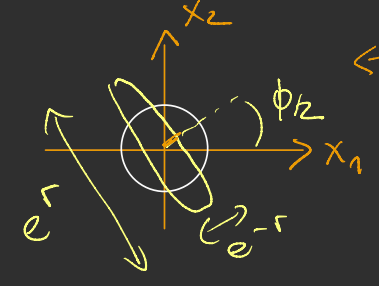 x₂
ϕ/2
x₁
e^r
e^-r